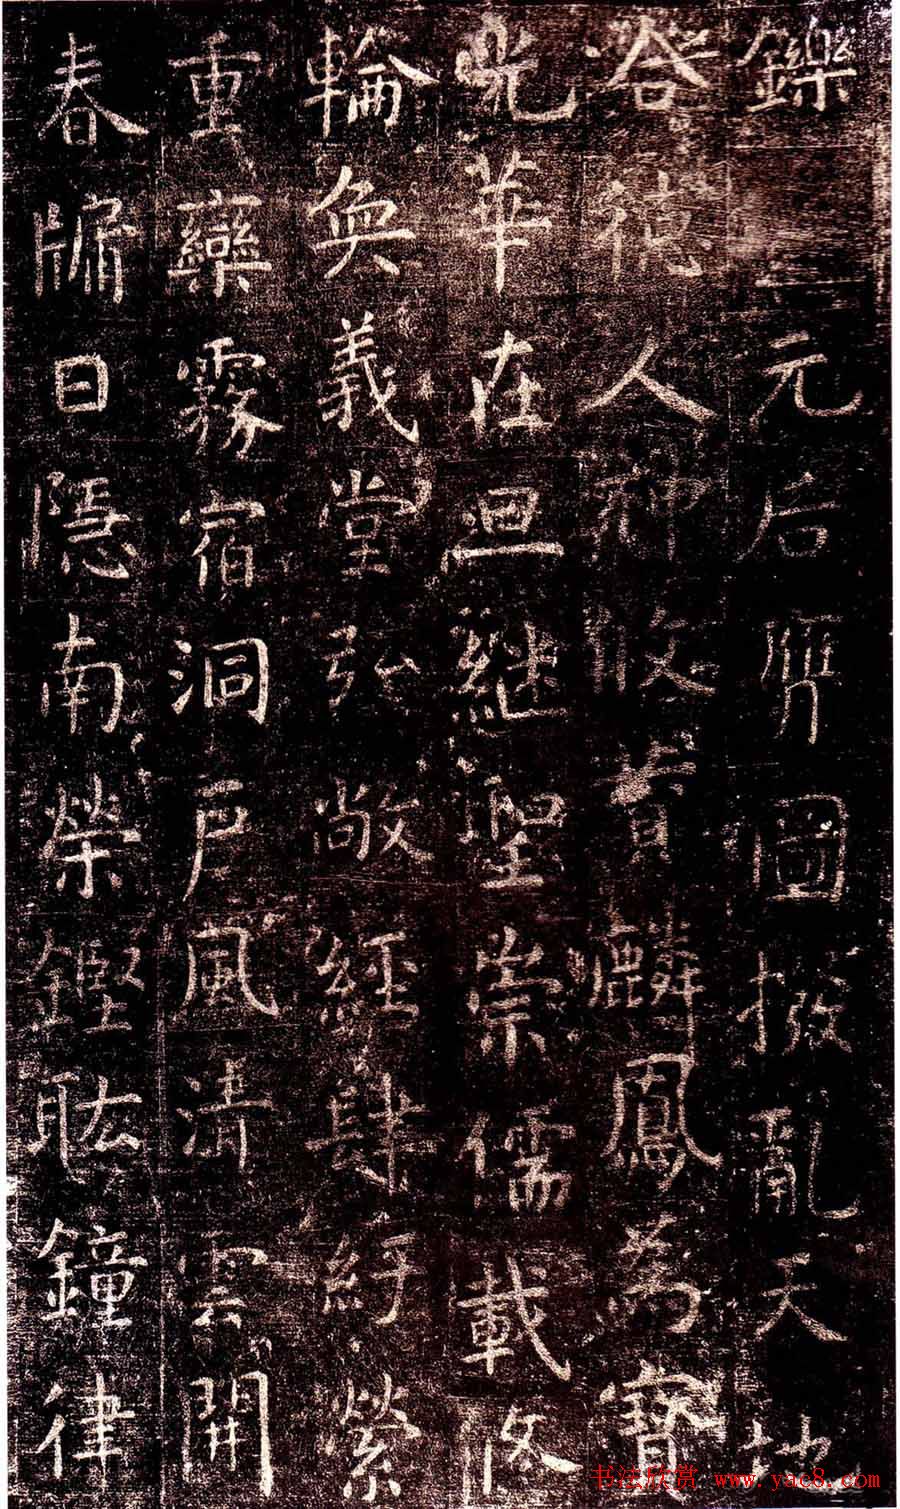 鑠元后膺圖撥亂天地
合德人神攸贊麟鳳為寶
光華在旦継聖崇儒載修
輪奐義堂弘敞經肆紆縈
重欒霧宿洞戶風清雲開
春牖日隱南榮鏗耾鐘律
书法欣赏 www.yac8.com